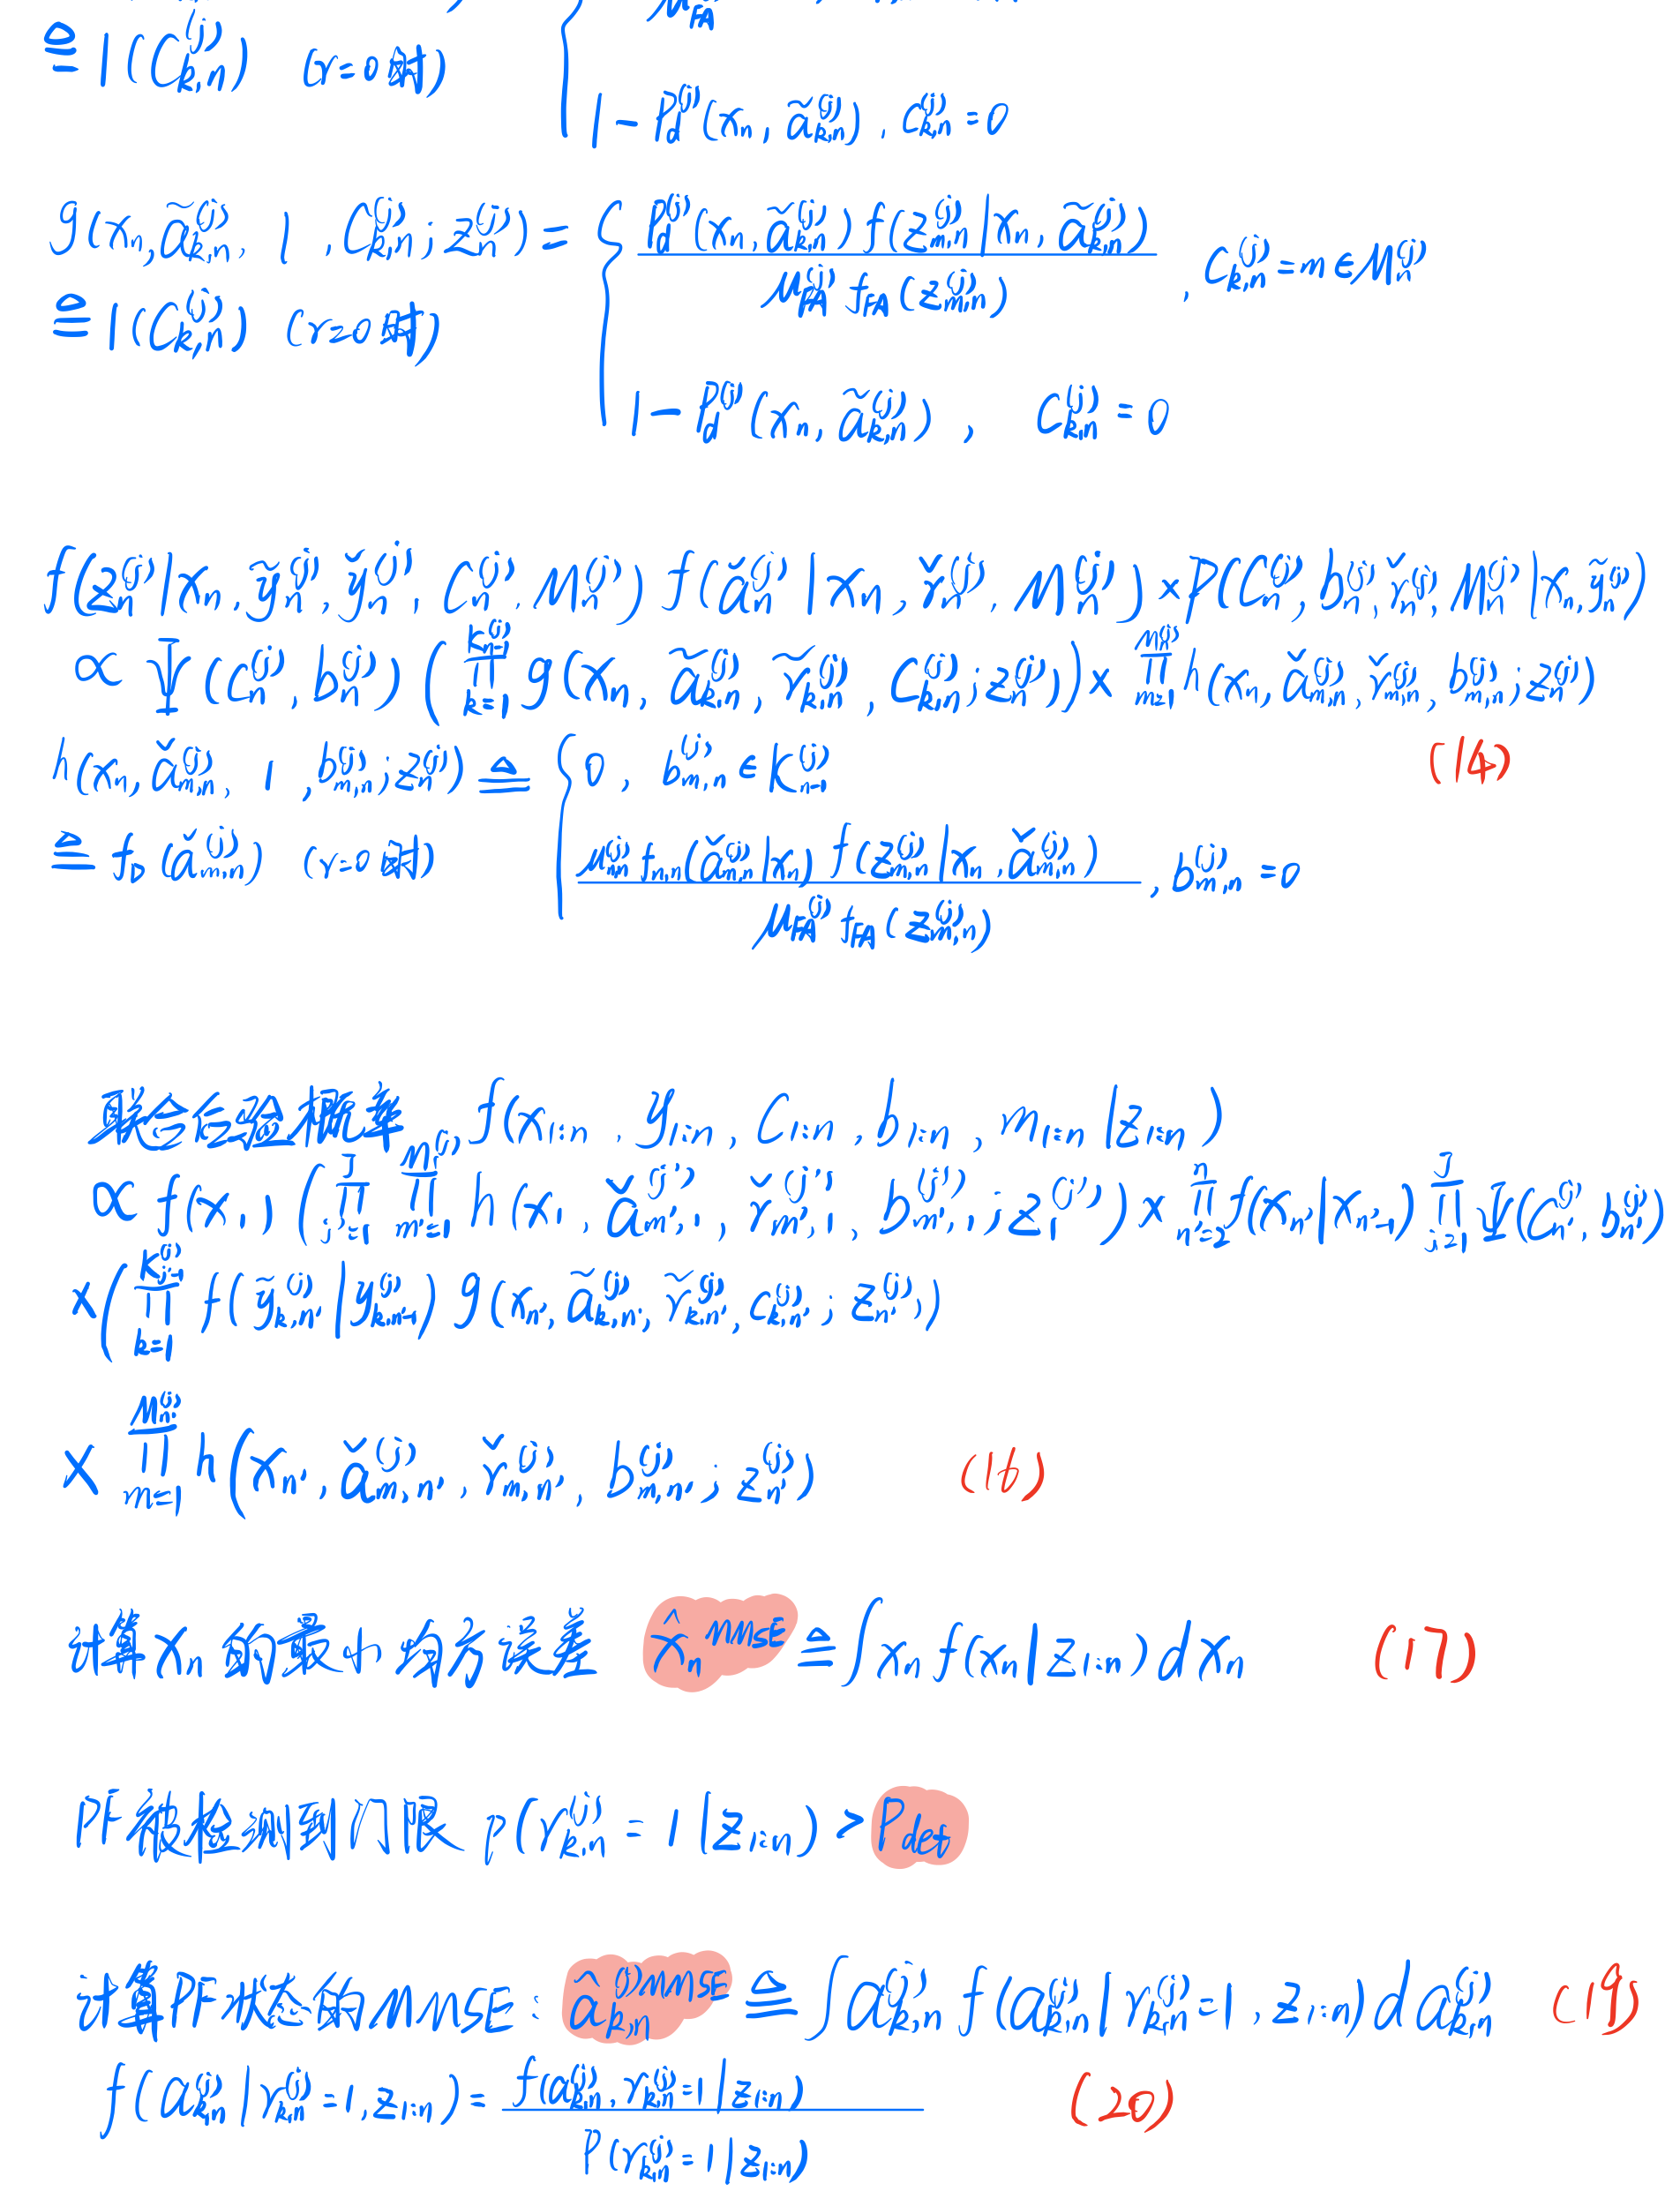 ≙ 1(C_{k,n}^{(j)}) (r=0时)
1 - P_d^{(j)}(x_n, ã_{k,n}^{(j)}), C_{k,n}^{(j)} = 0
g(x_n, ã_{k,n}^{(j)}, 1, C_{k,n}^{(j)}; z_n^{(j)}) = { P_d^{(j)}(x_n, ã_{k,n}^{(j)}) f(z_{m,n}^{(j)} | x_n, ã_{k,n}^{(j)}) / μ_{FA}^{(j)} f_{FA}(z_{m,n}^{(j)}), C_{k,n}^{(j)} = m ∈ M_n^{(j)}
≙ 1(C_{k,n}^{(j)}) (r=0时)
1 - P_d^{(j)}(x_n, ã_{k,n}^{(j)}), C_{k,n}^{(j)} = 0
f(z_n^{(j)} | x_n, ỹ_n^{(j)}, y̌_n^{(j)}, C_n^{(j)}, M_n^{(j)}) f(ǎ_n^{(j)} | x_n, ř_n^{(j)}, M_n^{(j)}) × P(C_n^{(j)}, b_n^{(j)}, ř_n^{(j)}, M_n^{(j)} | x_n, ỹ_n^{(j)})
∝ Ψ(C_n^{(j)}, b_n^{(j)}) (∏_{k=1}^{K_{n-1}^{(j)}} g(x_n, ã_{k,n}^{(j)}, r̃_{k,n}^{(j)}, C_{k,n}^{(j)}; z_n^{(j)})) × ∏_{m=1}^{M_n^{(j)}} h(x_n, ǎ_{m,n}^{(j)}, ř_{m,n}^{(j)}, b_{m,n}^{(j)}; z_n^{(j)})
h(x_n, ǎ_{m,n}^{(j)}, 1, b_{m,n}^{(j)}; z_n^{(j)}) ≙ { 0, b_{m,n}^{(j)} ∈ K_{n-1}^{(j)} (14)
≙ f_D(ǎ_{m,n}^{(j)}) (r=0时)
μ_{n,n}^{(j)} f_{n,n}(ǎ_{m,n}^{(j)} | x_n) f(z_{m,n}^{(j)} | x_n, ǎ_{m,n}^{(j)}) / μ_{FA}^{(j)} f_{FA}(z_{m,n}^{(j)}), b_{m,n}^{(j)} = 0
联合后验概率 f(x_{1:n}, y_{1:n}, C_{1:n}, b_{1:n}, m_{1:n} | z_{1:n})
∝ f(x_1) (∏_{j'=1}^{J} ∏_{m'=1}^{M_1^{(j')}} h(x_1, ǎ_{m',1}^{(j')}, ř_{m',1}^{(j')}, b_{m',1}^{(j')}; z_1^{(j')}) × ∏_{n'=2}^{n} f(x_{n'} | x_{n'-1}) ∏_{j=1}^{J} Ψ(C_{n'}^{(j)}, b_{n'}^{(j)})
× (∏_{k=1}^{K_{j'-1}^{(j)}} f(ỹ_{k,n'}^{(j)} | y_{k,n'-1}^{(j)}) g(x_{n'}, ã_{k,n'}^{(j)}, r̃_{k,n'}^{(j)}, C_{k,n'}^{(j)}; z_{n'}^{(j)})
× ∏_{m=1}^{M_{n'}^{(j)}} h(x_{n'}, ǎ_{m,n'}^{(j)}, ř_{m,n'}^{(j)}, b_{m,n'}^{(j)}; z_{n'}^{(j)}) (16)
计算x_n的最小均方误差 x̂_n^{MMSE} ≙ ∫ x_n f(x_n | z_{1:n}) dx_n (17)
PF被检测到门限 p(r_{k,n}^{(j)} = 1 | z_{1:n}) > P_{det}
计算PF状态的MMSE: â_{k,n}^{(j)MMSE} ≙ ∫ a_{k,n}^{(j)} f(a_{k,n}^{(j)} | r_{k,n}^{(j)} = 1, z_{1:n}) d a_{k,n}^{(j)} (19)
f(a_{k,n}^{(j)} | r_{k,n}^{(j)} = 1, z_{1:n}) = f(a_{k,n}^{(j)}, r_{k,n}^{(j)} = 1 | z_{1:n}) / P(r_{k,n}^{(j)} = 1 | z_{1:n}) (20)